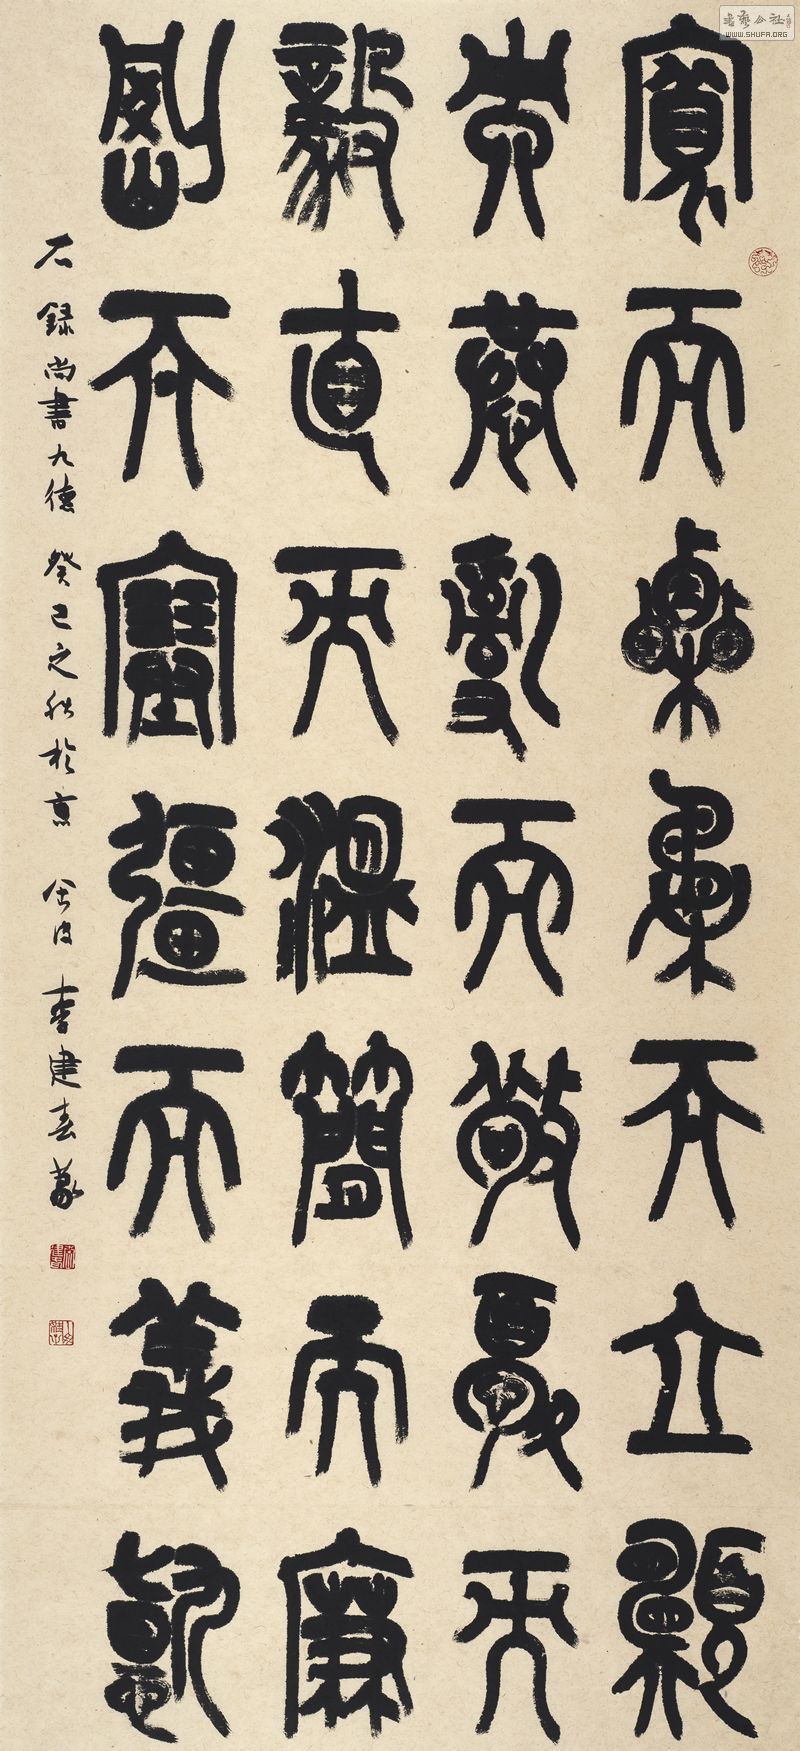 書藝公社
WWW.SHUFA.ORG
寬而栗柔而立願
而恭亂而敬擾而
毅直而溫簡而廉
剛而塞彊而義懿
右錄尚書九德 癸巳之秋於京 李建春篆